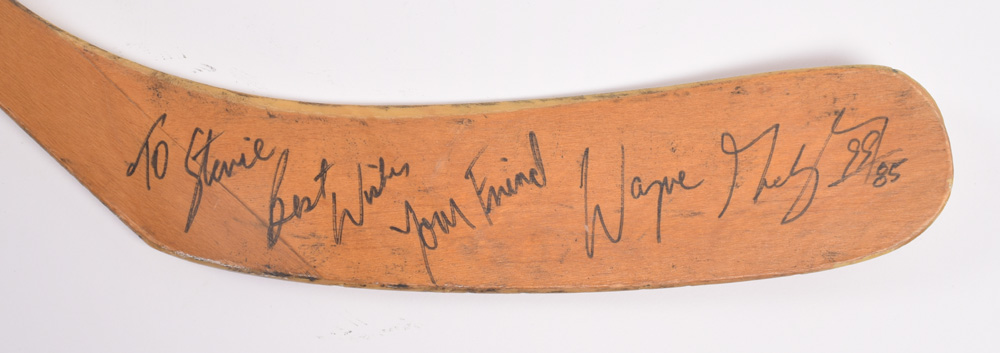 To Stevie Best Wishes Your Friend Wayne Gretzky 99/85